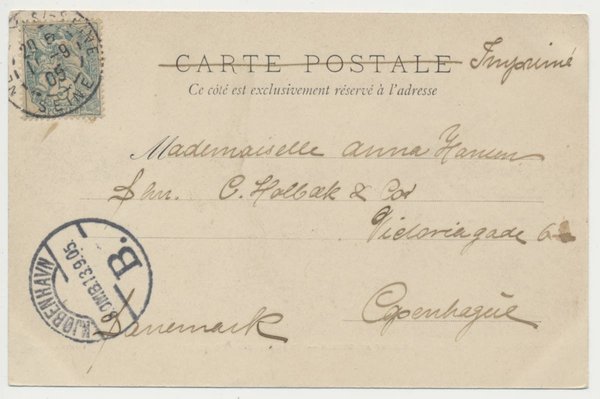 CARTE POSTALE Imprimé
Ce côté est exclusivement réservé à l'adresse
Mademoiselle Anna Hansen
C. Holbæk & Co's
Victoriagade 6
Danemark Copenhague
SEINE
11-9
05
KJØBENHAVN
13.9.05.
B.